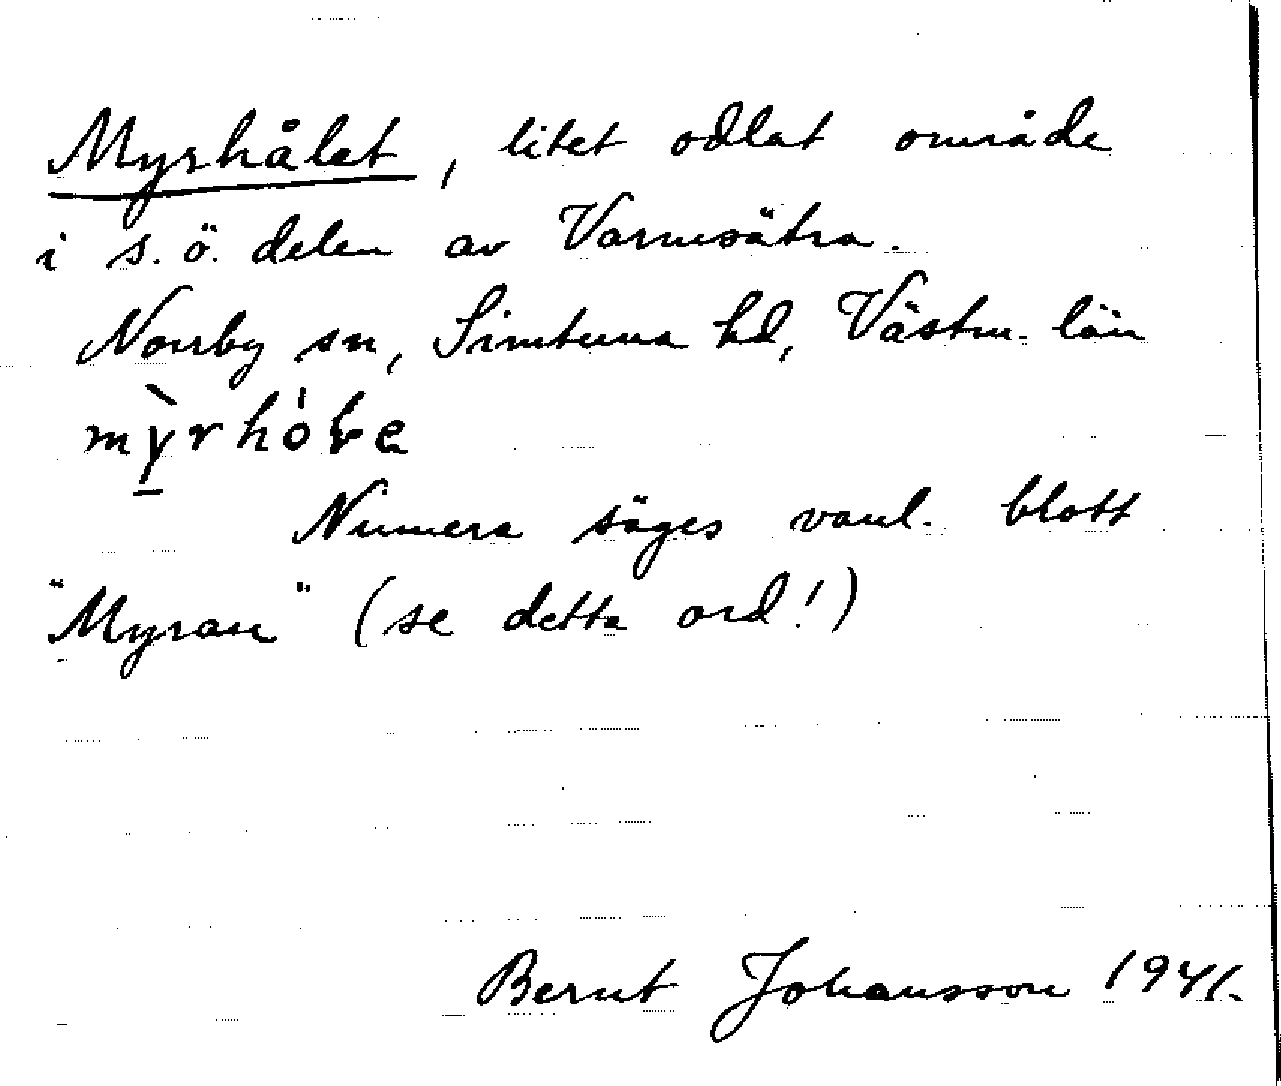 Myrhålet, litet odlat område
i s.ö. delen av Varmsätra.
Norrby sn, Simtuna hd, Västm. län
Numera säges vanl. blott
"Myran" (se detta ord!)
Bernt Johansson 1941.